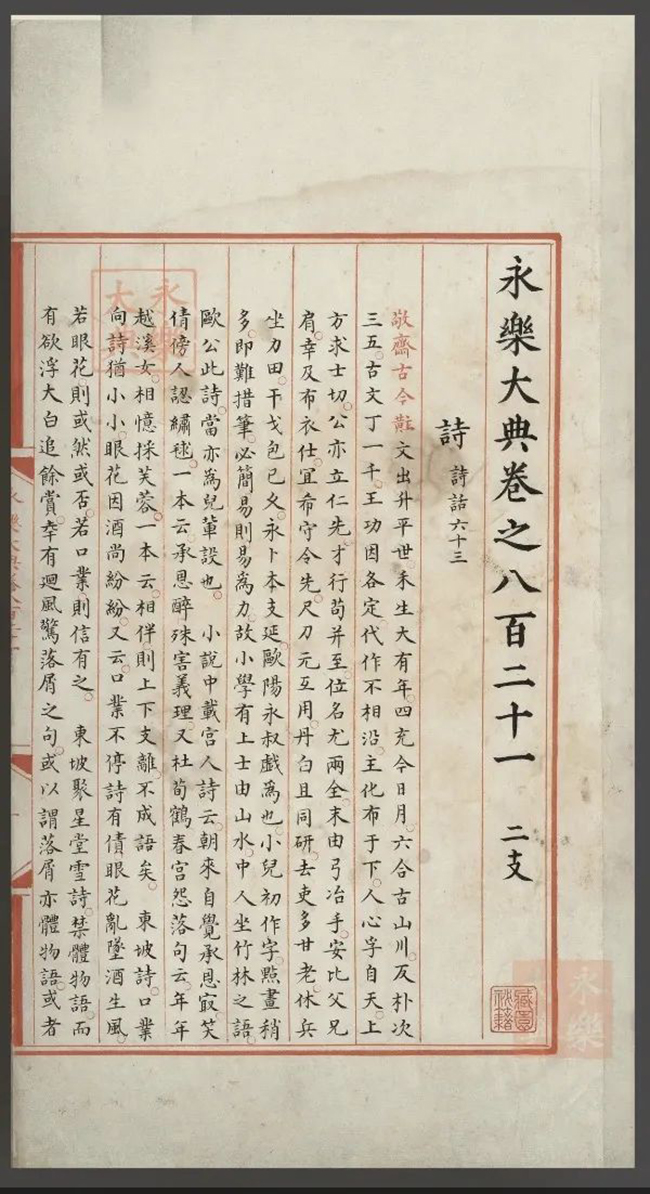 永樂大典卷之八百二十一 二支
詩 詩話六十三
敬齋古今黈文出升平世禾生大有年四充今日月六合古山川反朴次
三五古文丁一千王功因各定代作不相沿主化布于下人心孚自天上
方求士切公亦立仁先才行苟并至位名尤兩全未由弓冶手安比父兄
肩幸及布衣仕宜希守令先尺刀元互用丹白且同研去吏多甘老休兵
坐力田干戈包已久永卜本支延歐陽永叔戲為也小兒初作字點畫稍
多即難措筆必簡易則易為力故小學有上士由山水中人坐竹林之語
歐公此詩當亦為兒輩設也 小說中載宮人詩云朝來自覺承恩㝡笑
倩傍人認繡毬一本云承恩醉殊害義理又杜荀鶴春宮怨落句云年年
越溪女相憶採芙蓉一本云相伴則上下支離不成語矣 東坡詩口業
向詩猶小小眼花因酒尚紛紛又云口業不停詩有債眼花亂墜酒生風
若眼花則或然或否若口業則信有之 東坡聚星堂雪詩禁體物語而
有欲浮大白追餘賞幸有迴風驚落屑之句或以謂落屑亦體物語或者
永樂大
永樂
藏園秘籍